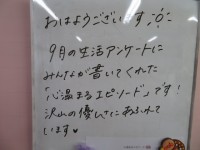 おはようございます
9月の生活アンケートに
みんなが書いてくれた
「心温まるエピソード」です!
沢山の優しさにあふれて
います♥